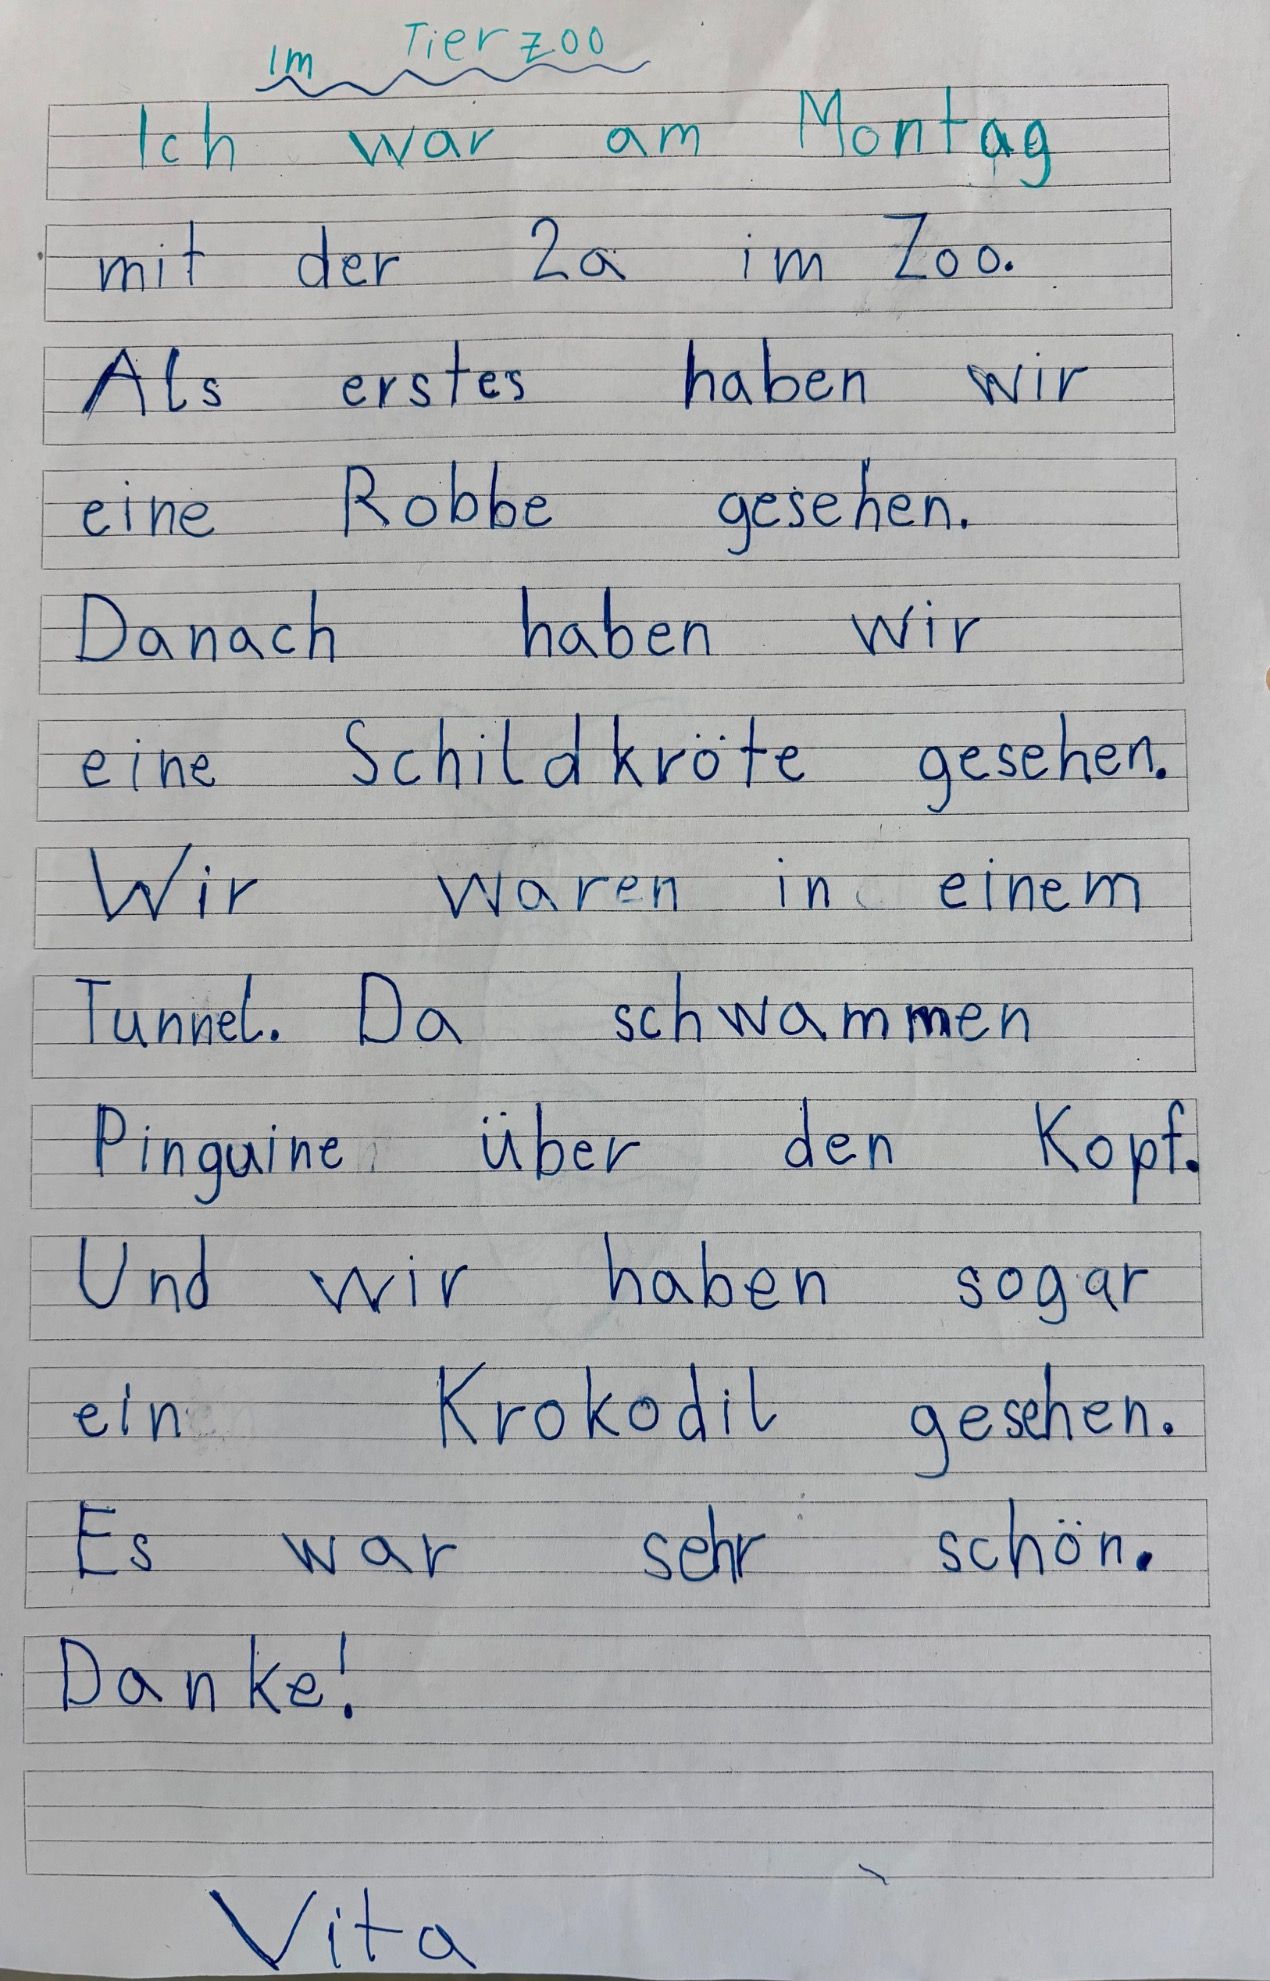 Im Tierzoo
Ich war am Montag
mit der 2a im Zoo.
Als erstes haben wir
eine Robbe gesehen.
Danach haben wir
eine Schildkröte gesehen.
Wir waren in einem
Tunnel. Da schwammen
Pinguine über den Kopf.
Und wir haben sogar
ein Krokodil gesehen.
Es war sehr schön.
Danke!
Vita